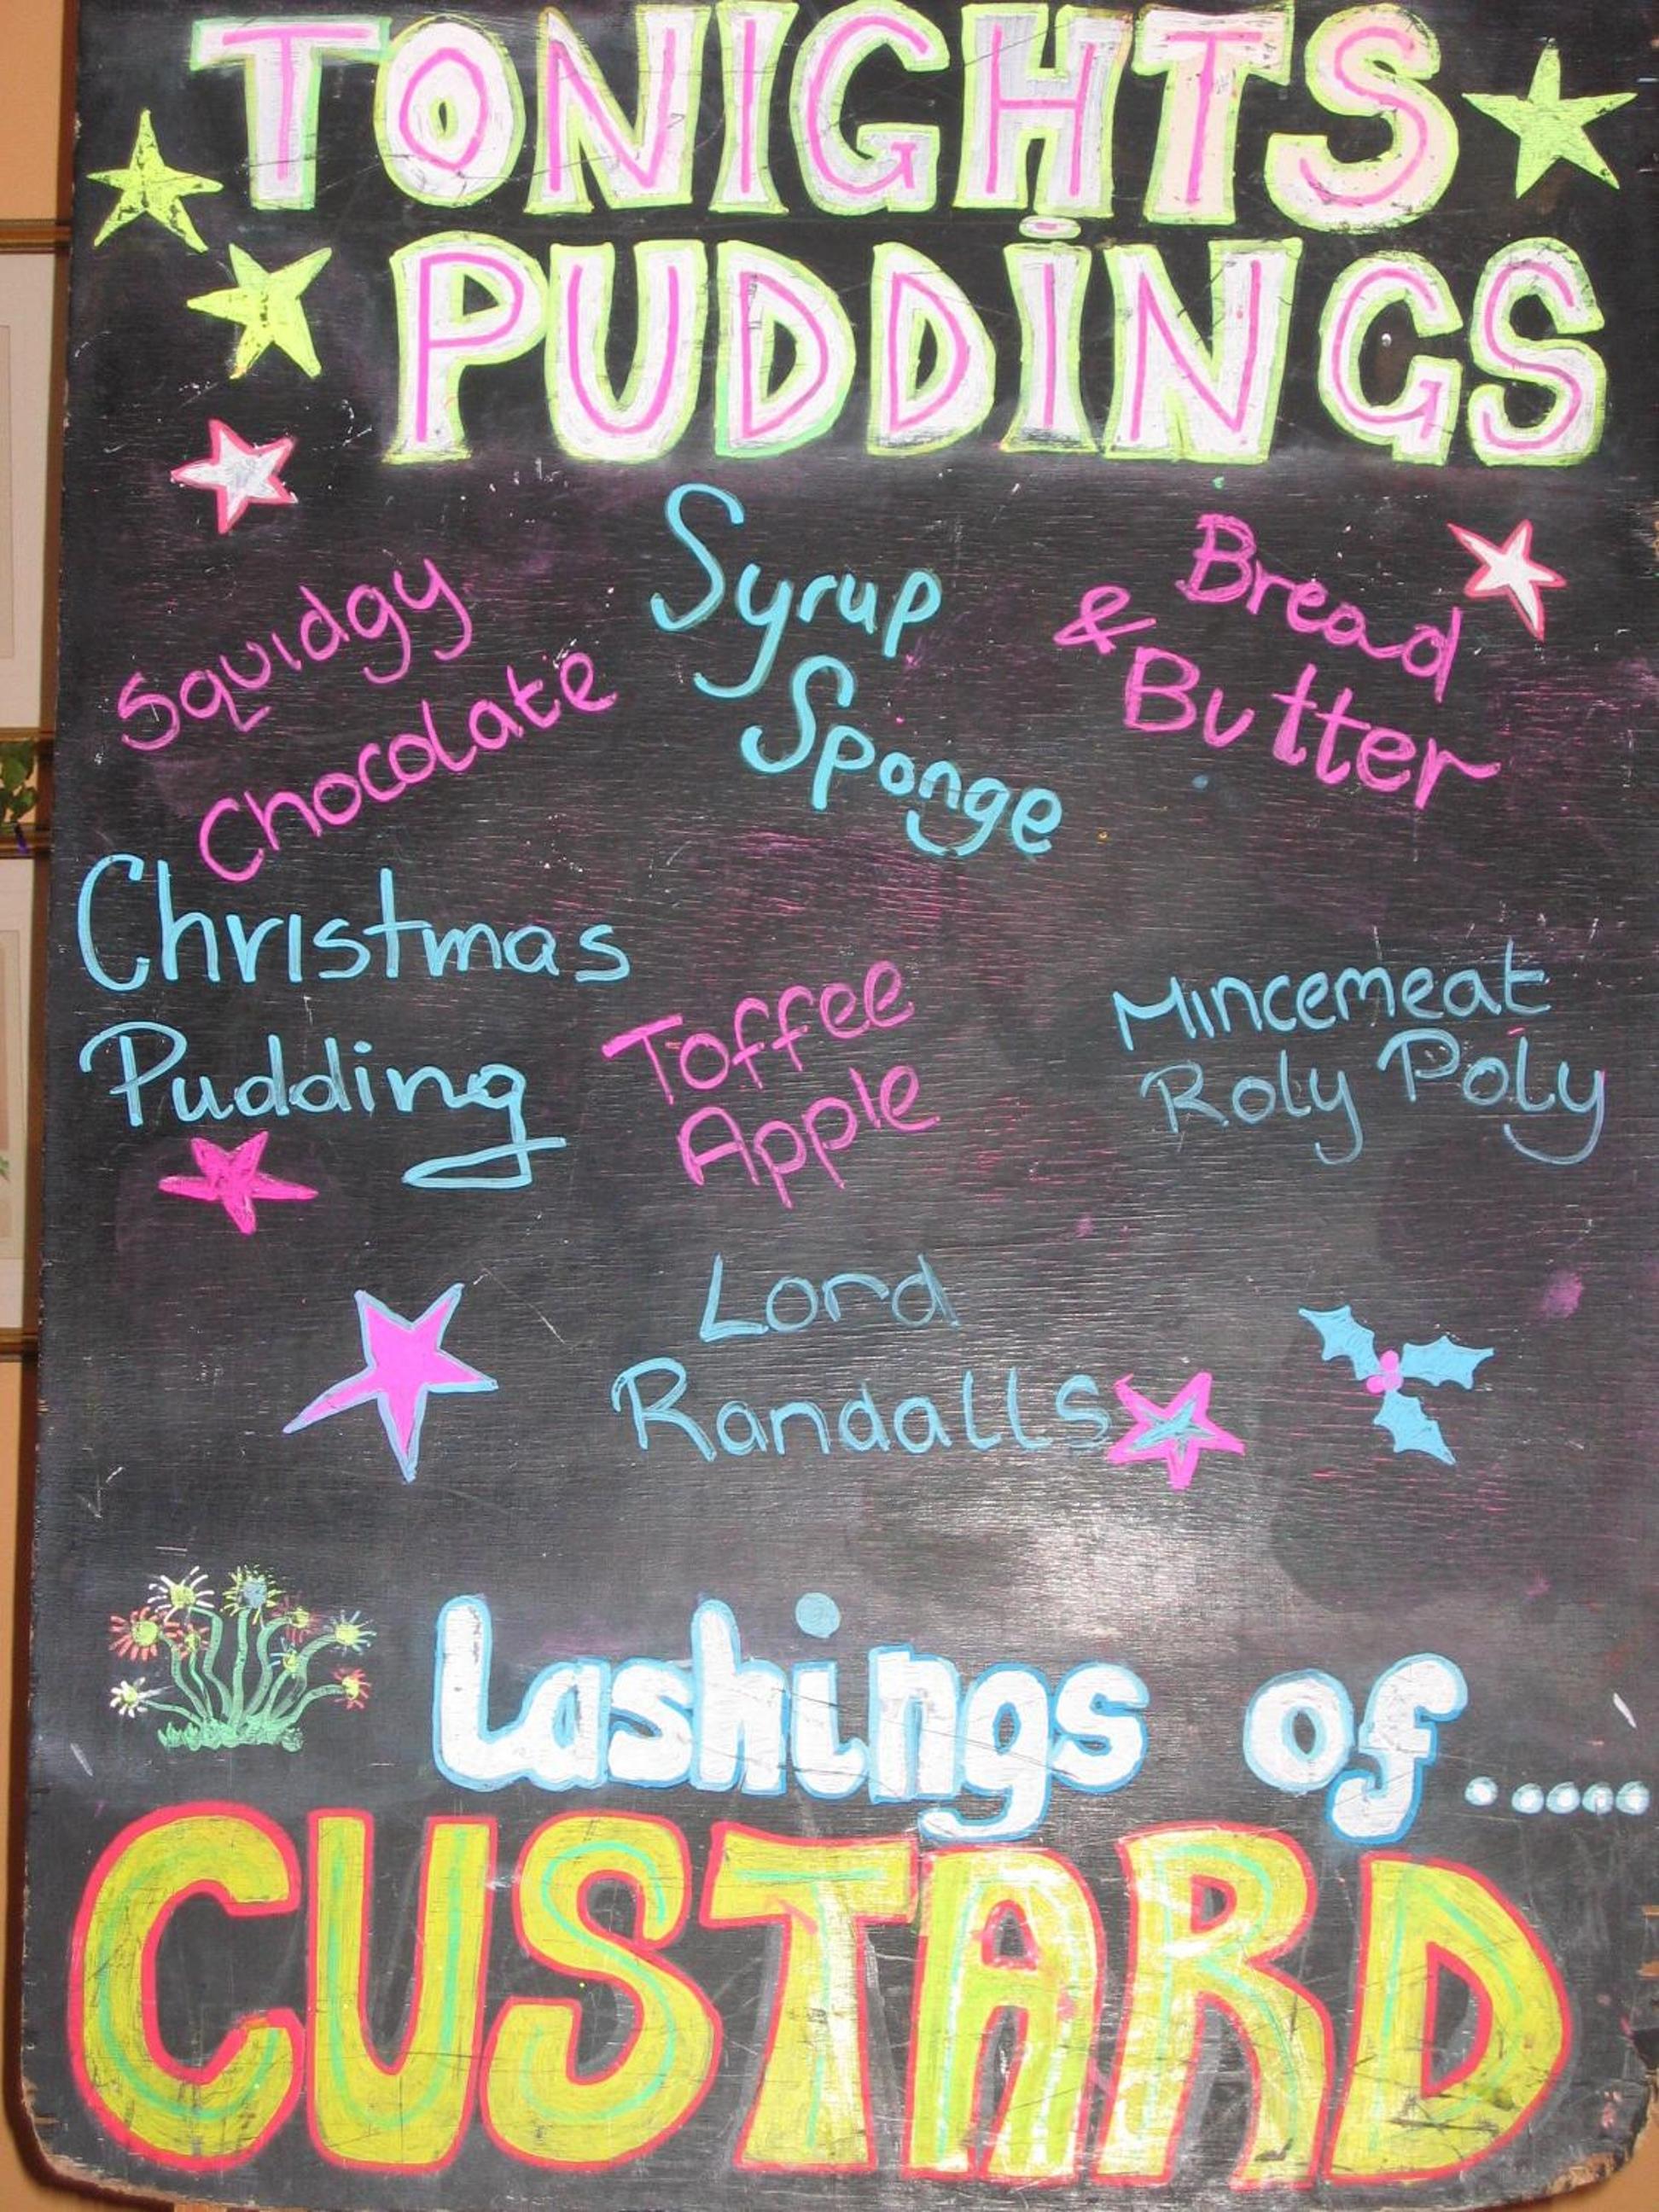 TONIGHTS
PUDDiNGS
Squidgy
Chocolate
Syrup
Sponge
Bread
& Butter
Christmas
Pudding
Toffee
Apple
Mincemeat
Roly Poly
Lord
Randalls
Lashings of.....
CUSTARD